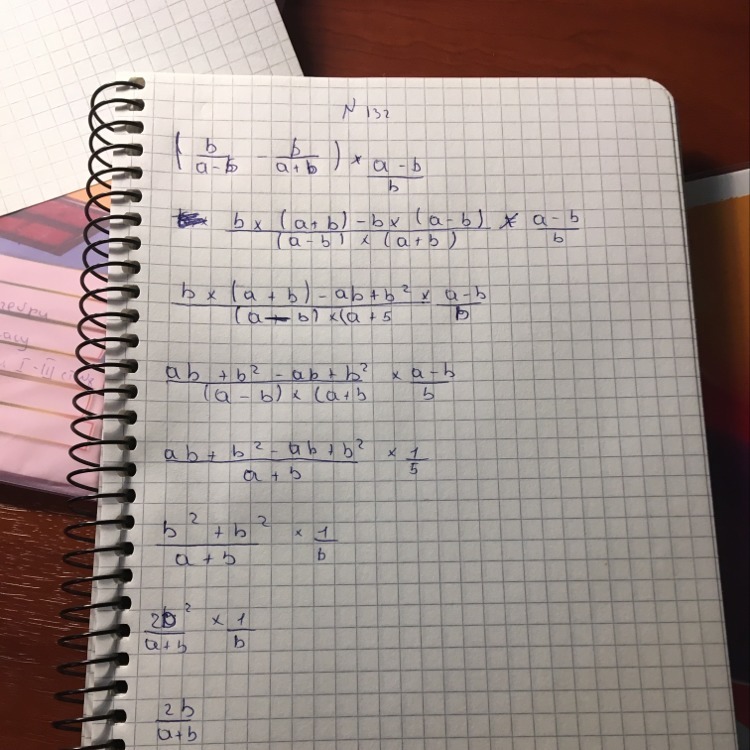 N 132
( b/(a-b) - b/(a+b) ) × (a-b)/b
(b × (a+b) - b × (a-b))/((a-b) × (a+b)) × (a-b)/b
(b × (a+b) - ab + b²)/((a-b) × (a+5) × (a-b)/b
(ab + b² - ab + b²)/((a-b) × (a+b) × (a-b)/b
(ab + b² - ab + b²)/(a+b) × 1/5
(b² + b²)/(a+b) × 1/b
2b²/(a+b) × 1/b
2b/(a+b)
I-III